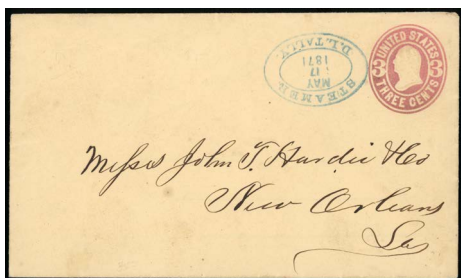 STEAMER
MAY
17
1871
D.L.TALLY.
UNITED STATES
3 3
THREE CENTS
Messrs John T. Hardie & Co
New Orleans
La